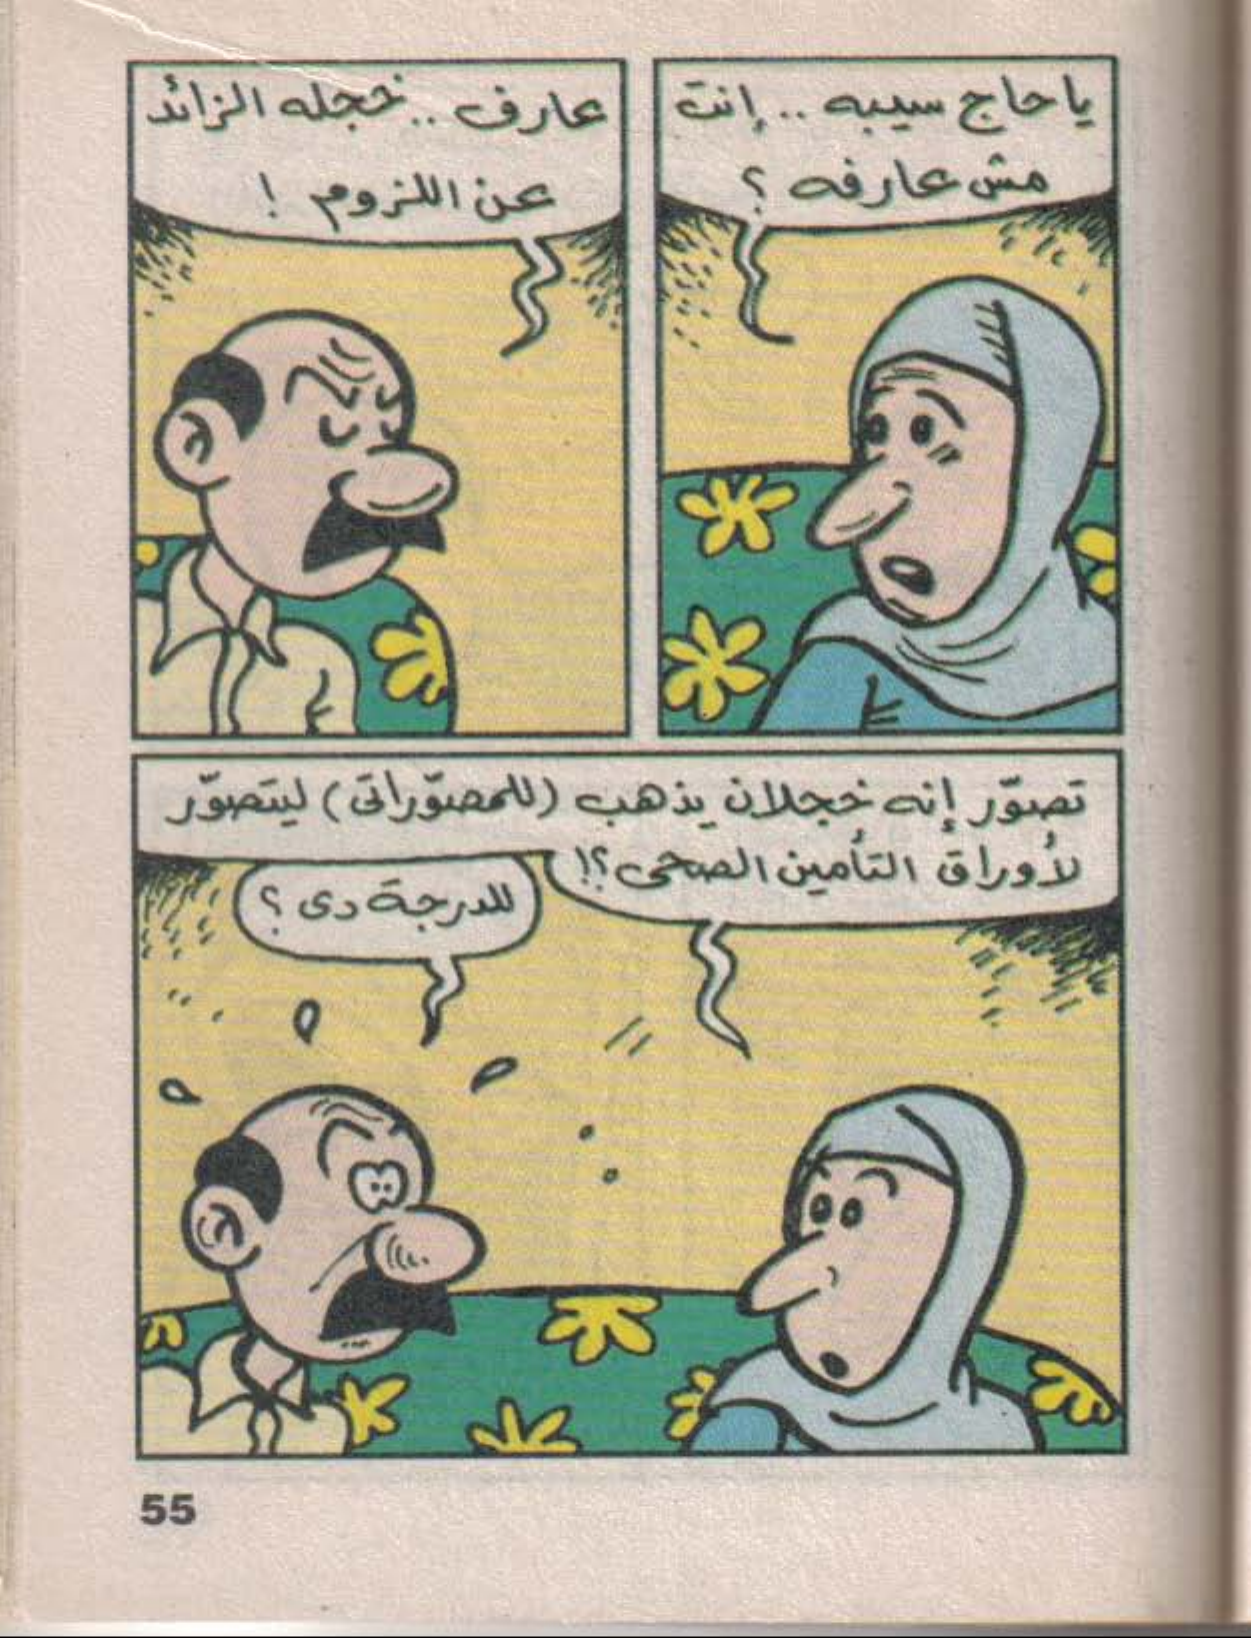 يا حاج سيبه .. إنت
مش عارفه ؟
عارف .. خجله الزائد
عن اللزوم !
تصوّر إنه خجلان يذهب (للمصوّراتى) ليتصوّر
لأوراق التأمين الصحى؟!
للدرجة دى ؟
55